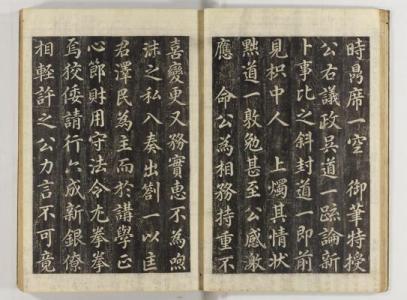 時曷席一空 御筆特授
公右議政吳道一䟽論新
卜事比之斜封道一即前
見枳中人 上燭其情狀
黜道一敦勉甚至公感激
應 命公為相務持重不
喜變更又務實惠不為喣
沫之私入奏出劄一以匡
君澤民為主而於講學正
心節財用守法令尤拳拳
焉狡倭請行六成新銀僚
相輕許之公力言不可竟